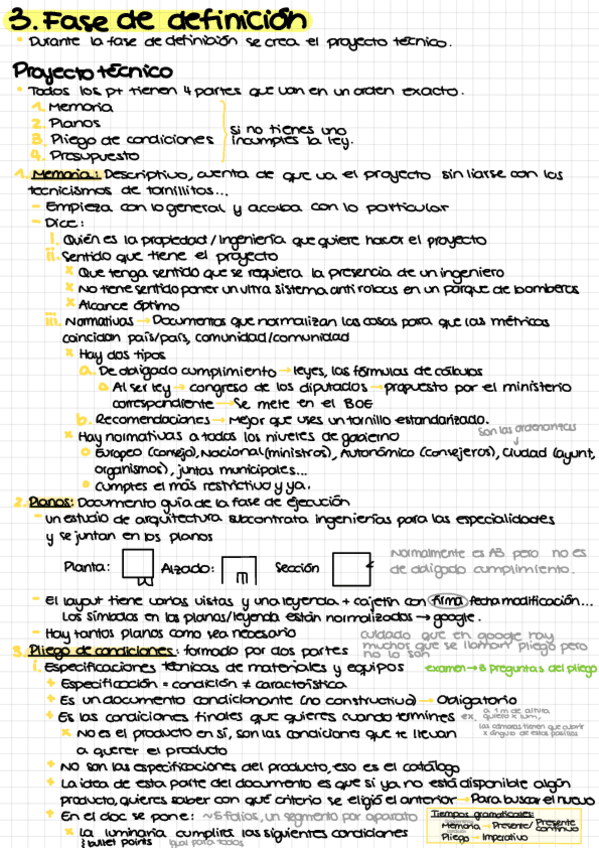 3. Fase de definición
• Durante la fase de definición se crea el proyecto técnico.
Proyecto técnico
• Todos los pt tienen 4 partes que van en un orden exacto.
1. Memoria
2. Planos
3. Pliego de condiciones
4. Presupuesto
si no tienes uno
incumples la ley.
1. Memoria: Descriptivo, cuenta de que va el proyecto sin liarse con los
tecnicismos de tornillitos...
- Empieza con lo general y acaba con lo particular
- Dice:
i. Quién es la propiedad/Ingeniería que quiere hacer el proyecto
ii. Sentido que tiene el proyecto
x Que tenga sentido que se requiera la presencia de un ingeniero
x No tiene sentido poner un ultra sistema anti robos en un parque de bomberos
x Alcance óptimo
iii. Normativas → Documentos que normalizan las cosas para que las métricas
coincidan país/país, comunidad/comunidad
x Hay dos tipos
a. De obligado cumplimiento → leyes, las fórmulas de cálculos
o Al ser ley → congreso de los diputados → propuesto por el ministerio
correspondiente → Se mete en el BOE
b. Recomendaciones → Mejor que uses un tornillo estandarizado.
x Hay normativas a todos los niveles de gobierno
son las ordenanzas
o Europeo (consejo), Nacional (ministros), Autonómico (consejeros), Ciudad (ayunt,
organismos), juntas municipales...
o Cumples el más restrictivo y ya.
2. Planos: Documento guía de la fase de ejecución
- un estudio de arquitectura subcontrata ingenierías para las especialidades
y se juntan en los planos
Planta: Alzado: Sección
Normalmente es AB pero no es
de obligado cumplimiento.
- El layout tiene varias vistas y una leyenda + cajetín con firma fecha modificación...
Los símbolos en los planos/leyenda están normalizados → google.
- Hay tantos planos como sea necesario
cuidado que en google hay
muchos que se llaman pliego pero
no lo son
3. Pliego de condiciones: formado por dos partes
i. Especificaciones técnicas de materiales y equipos
examen → 8 preguntas del pliego
+ Especificación = condición ≠ característica
+ Es un documento condicionante (no constructivo) → Obligatorio
+ Es las condiciones finales que quieres cuando termines
ex. a 1 m de altura
quiero x lum,
las cámaras tienen que cubrir
x ángulo de estas positios
x No es el producto en sí, son las condiciones que te llevan
a querer el producto
+ No son las especificaciones del producto, eso es el catálogo
+ La idea de esta parte del documento es que si ya no está disponible algún
producto, quieres saber con qué criterio se eligió el anterior → Para buscar el nuevo
+ En el doc se pone: ~5 folios, un segmento por aparato
x La luminaria cumplirá las siguientes condiciones
bullet points igual para todos
Tiempos gramaticales:
Memoria → Presente/Presente
continuo
Pliego → Imperativo